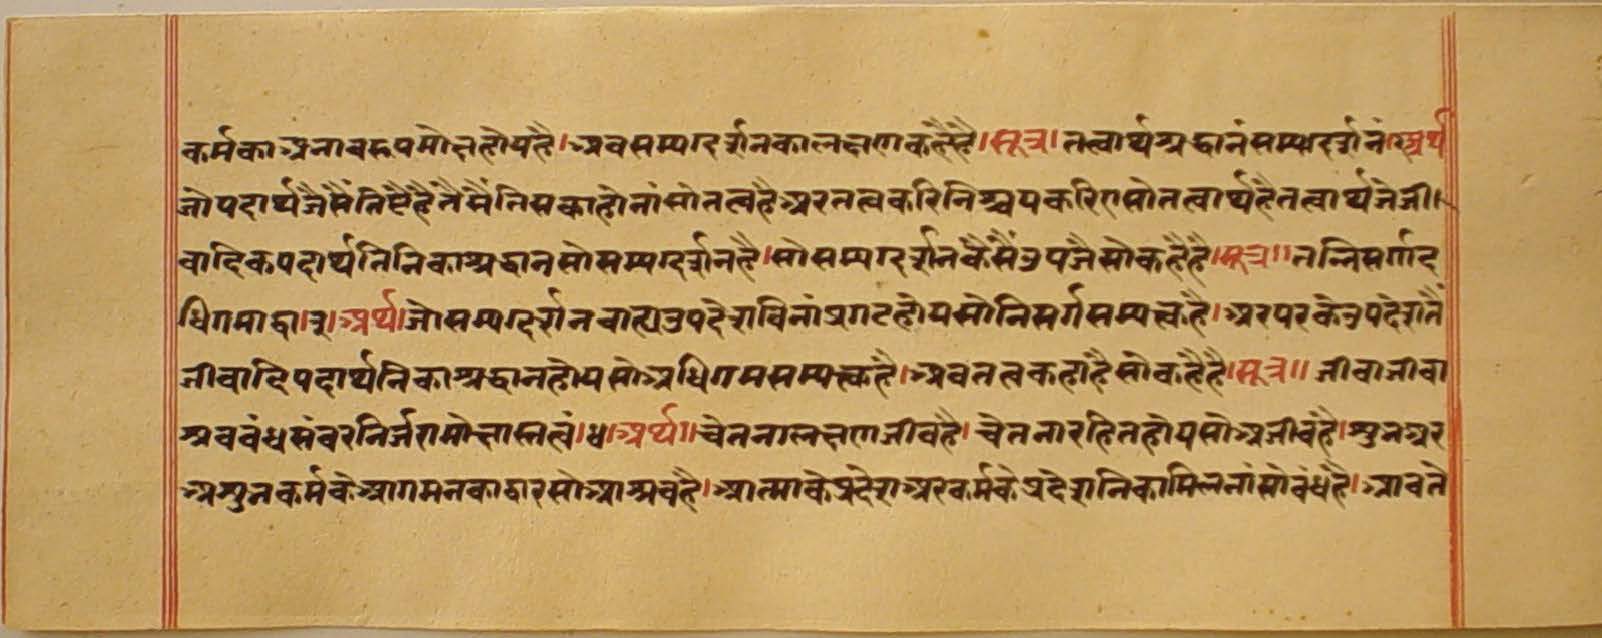 कर्मकाअनावरूपमोक्षहोयहै।अवसम्यग्दर्शनकालक्षणकहैहै।सूत्र।तत्वार्थश्रद्धानंसम्यग्दर्शनं।अर्थ
जोपदार्थजैसैंतिष्टैहैंतैसैंतिसकाहोनांसोतत्वहैअरतत्वकरिनिश्चयकरिएसोतत्वार्थहैतत्वार्थजेजी।
वादिकपदार्थतिनिकाश्रद्धानसोसम्यग्दर्शनहै।सोसम्यग्दर्शनकैसैंउपजैसोकहैहै।सूत्र॥तन्निसर्गाद
धिगमाद्वा।३।अर्थ।जोसम्यग्दर्शनवाह्यउपदेशविनांप्रगटहोयसोनिसर्गसम्यत्कहै।अरपरकेउपदेशतैं
जीवादिपदार्थनिकाश्रद्धानहोयसोअधिगमसम्यत्कहै।अवतत्वकहाहैसोकहैहै।सूत्र॥जीवाजीवा
श्रवबंधसंवरनिर्जरामोक्षास्तत्वं।४।अर्थ॥चेतनालक्षणजीवहै।चेतनारहितहोयसोअजीवहै।शुभअर
अशुभकर्मकेआगमनकाद्वारसोआश्रवहै।आत्माकेप्रदेशअरकर्मकेप्रदेशनिकामिलनांसोबंधहै।आवते